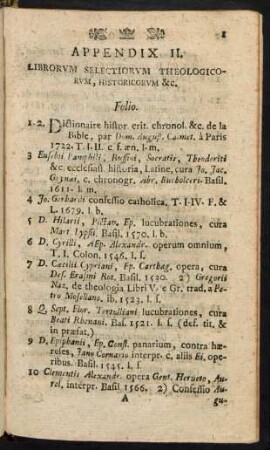 1
APPENDIX II.
LIBRORVM SELECTIORVM THEOLOGICO-
RVM, HISTORICORVM &c.
Folio.
1-2. Dictionnaire histor. crit. chronol. &c. de la
Bible, par Dom. August. Calmet. à Paris
1722. T. I-II. c. f. æn. l-m.
3 Eusebii Pamphili, Ruffini, Socratis, Theodoriti
&c. ecclesiast. historia, Latine, cura Jo. Jac.
Grynæi, c. chronogr. Abr. Bucholceri. Basil.
1611. l-m.
4 Jo. Gerhardi confessio catholica. T. I-IV. F. &
L. 1679. l. b.
5 D. Hilarii, Pictav. Ep. lucubrationes, cura
Mart. Lypsii. Basil. 1570. l. b.
6 D. Cyrilli, AEp. Alexandr. operum omnium,
T. I. Colon. 1546. l. s.
7 D. Cæcilii Cypriani, Ep. Carthag. opera, cura
Des. Erasmi Rot. Basil. 1520. 2) Gregorii
Naz. de theologia Libri V. e Gr. trad. a Petro
Mosellano. ib. 1523. l. s.
8 Q. Sept. Flor. Tertulliani lucubrationes, cura
Beati Rhenani. Bas. 1521. s. s. (def. tit. &
in præfat.)
9 D. Epiphanii, Ep. Const. panarium, contra hæ-
reses, Jano Cornario interpr. c. aliis Ei. ope-
ribus. Basil. 1545. l. s.
10 Clementis Alexandr. opera Gent. Herveto, Au-
rel. interpr. Basil. 1566. 2) Confessio Au-
A
gu-